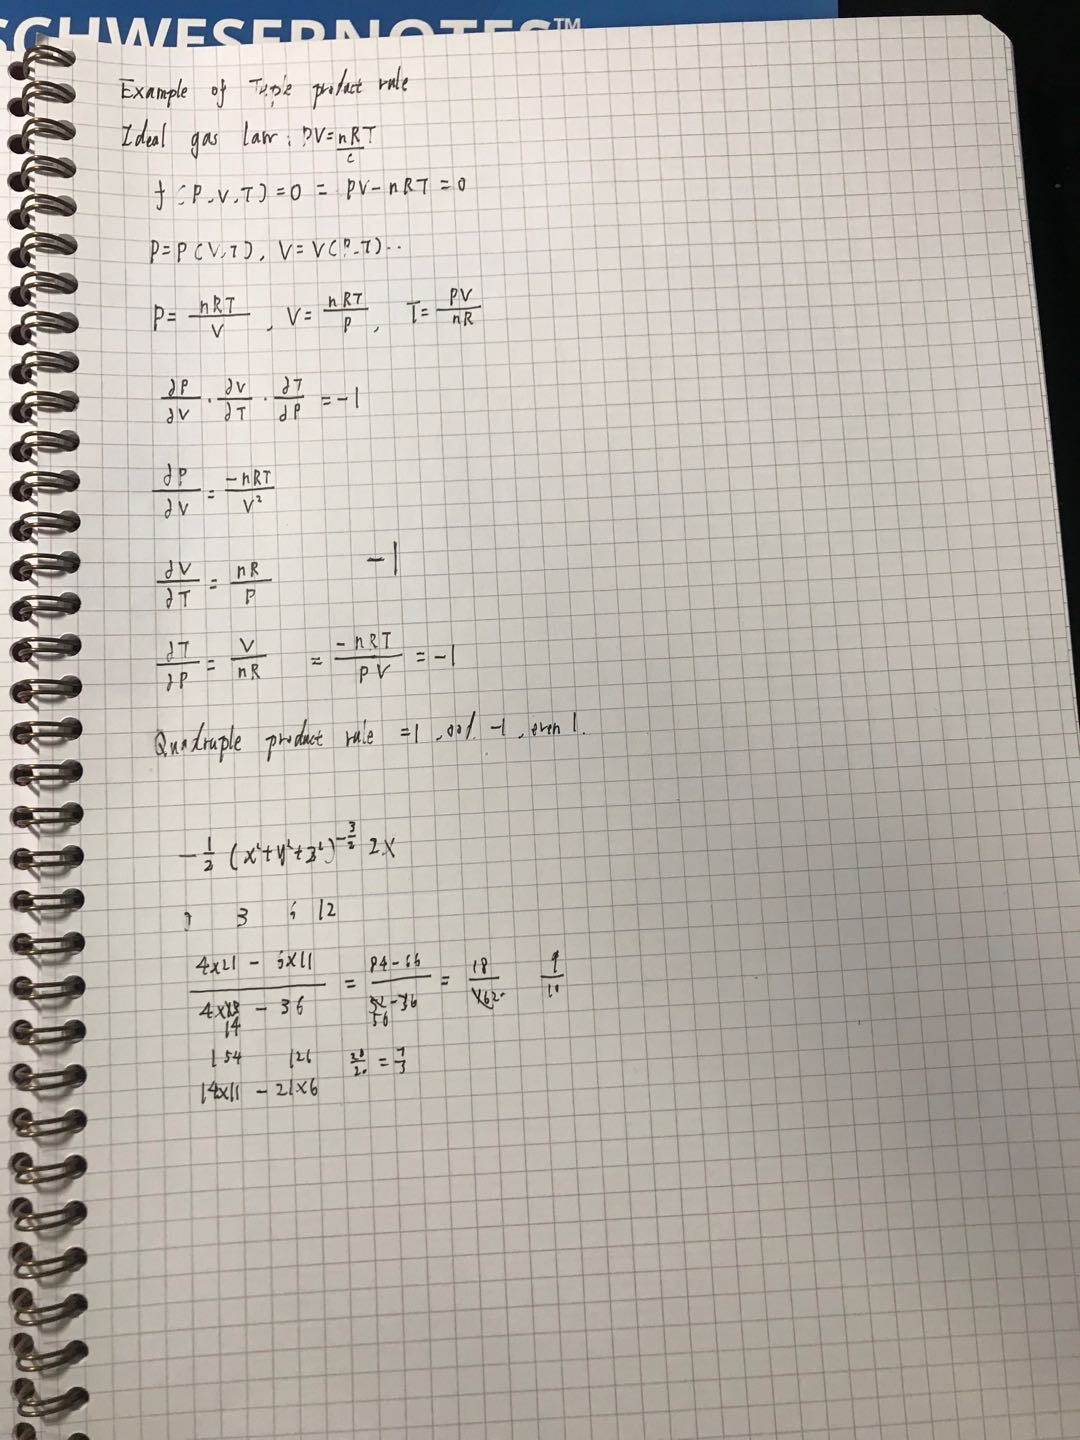 SCHWESERNOTES™
Example of Triple product rule
Ideal gas law: PV=nRT
c
f(P,V,T)=0 = PV-nRT=0
P=P(V,T), V=V(P,T)..
P= nRT/V , V= nRT/P , T= PV/nR
∂P/∂V · ∂V/∂T · ∂T/∂P =-1
∂P/∂V = -nRT/V²
∂V/∂T = nR/P -1
∂T/∂P = V/nR = -nRT/PV =-1
Quadruple product rule =1, odd -1, even 1.
-1/2 (x²+y²+z²)^-3/2 2x
3 6 12
4x21 - 6x11 = 84-66 = 18 9
4x - 36 -36 20 10
14 56
154 126 28/20 = 7/5
14x11 - 21x6